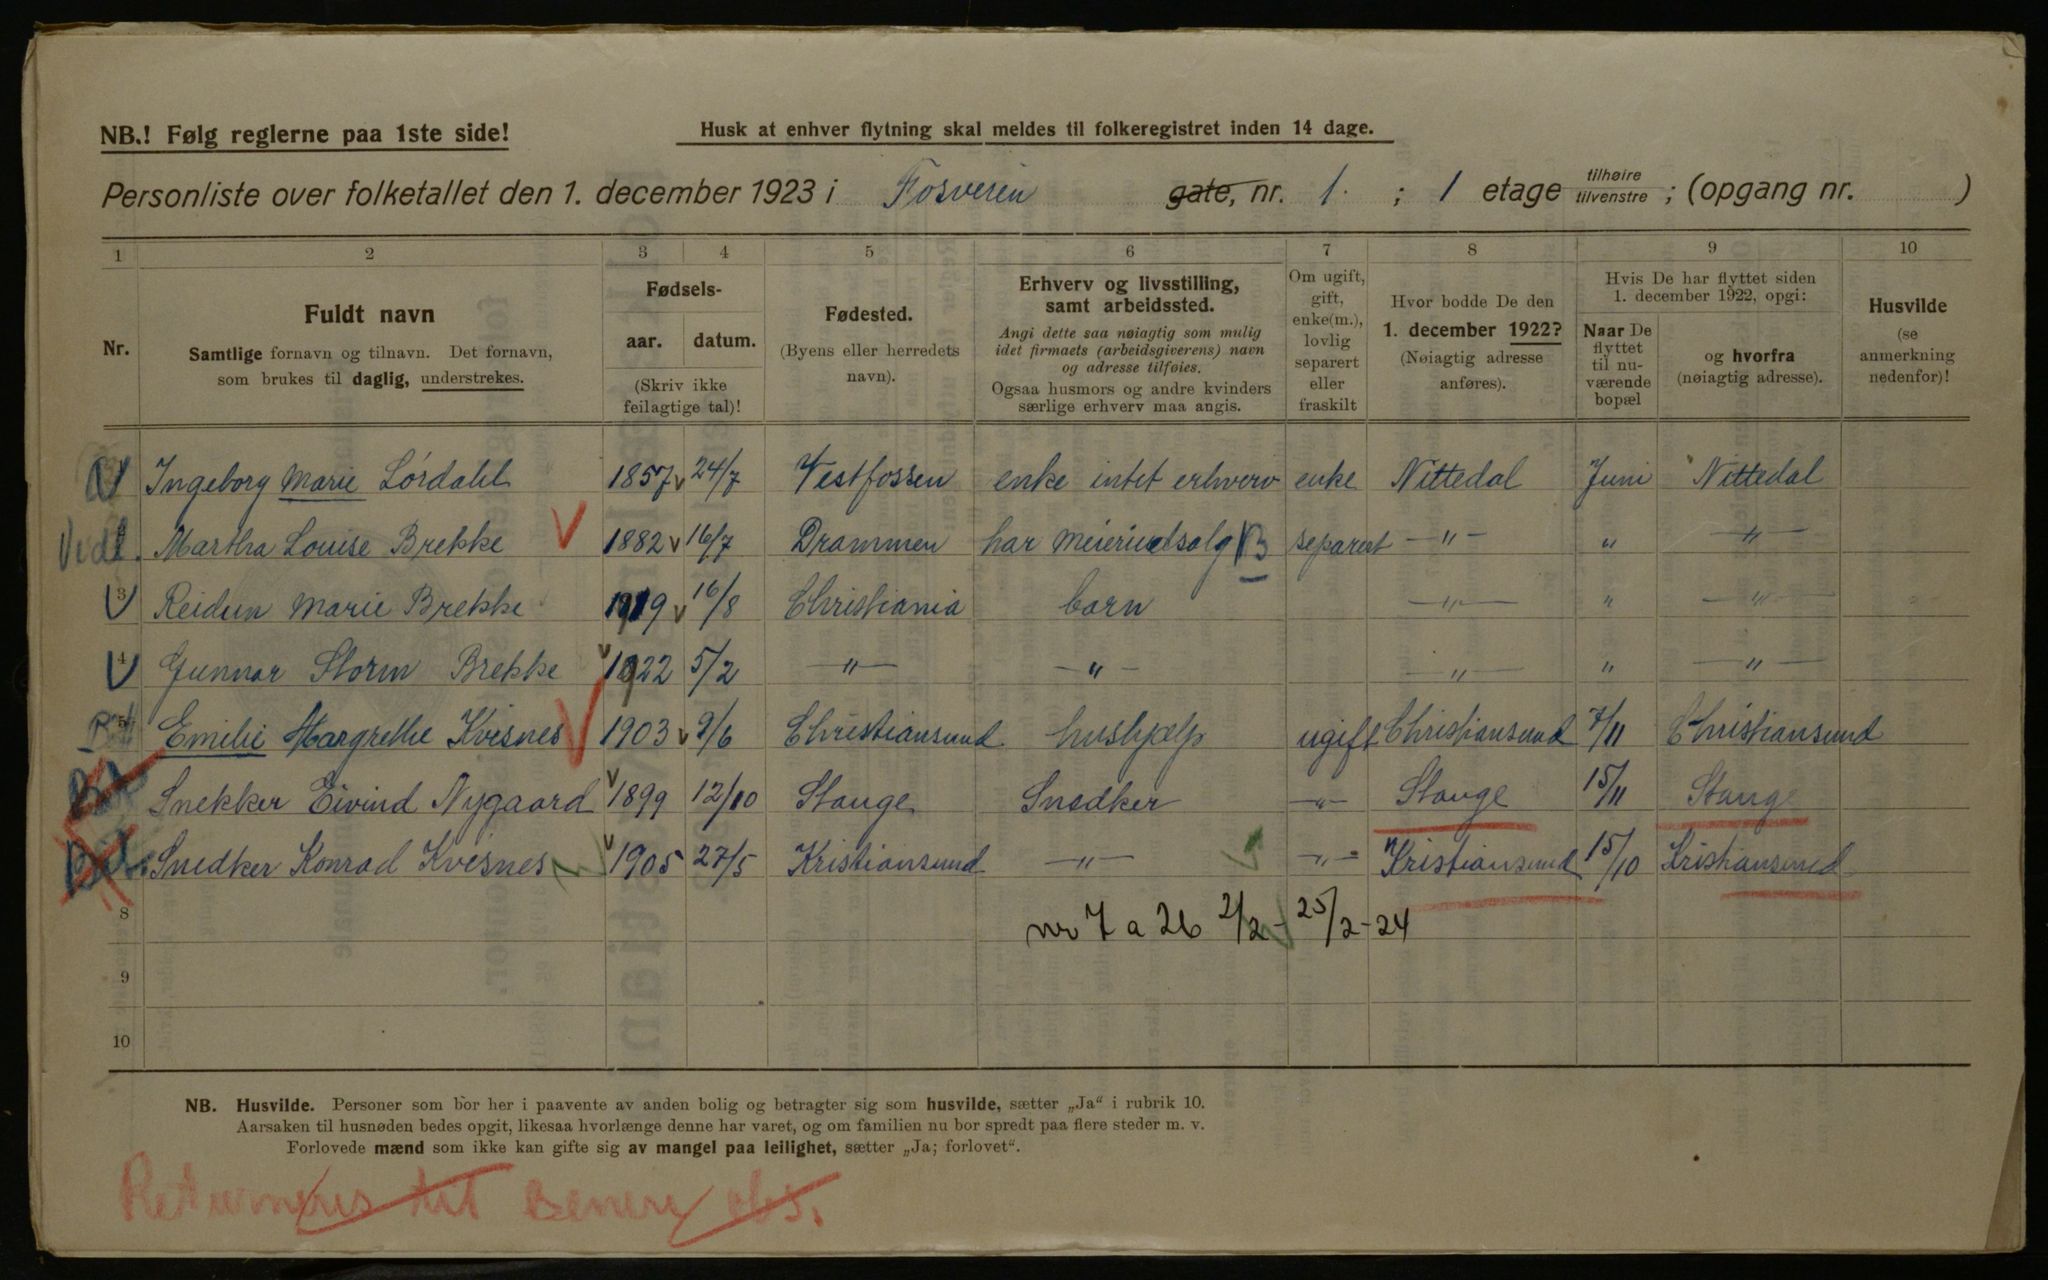 NB.! Følg reglerne paa 1ste side!
Husk at enhver flytning skal meldes til folkeregistret inden 14 dage.
Personliste over folketallet den 1. december 1923 i Fosveien gate, nr. 1. ; 1 etage tilhøire tilvenstre ; (opgang nr. )
1 2 3 4 5 6 7 8 9 10
Nr.
Fuldt navn
Samtlige fornavn og tilnavn. Det fornavn,
som brukes til daglig, understrekes.
Fødsels-
aar. datum.
(Skriv ikke
feilagtige tal)!
Fødested.
(Byens eller herredets
navn).
Erhverv og livsstilling,
samt arbeidssted.
Angi dette saa nøiagtig som mulig
idet firmaets (arbeidsgiverens) navn
og adresse tilføies.
Ogsaa husmors og andre kvinders
særlige erhverv maa angis.
Om ugift,
gift,
enke(m.),
lovlig
separert
eller
fraskilt
Hvor bodde De den
1. december 1922?
(Nøiagtig adresse
anføres).
Hvis De har flyttet siden
1. december 1922, opgi:
Naar De
flyttet
til nu-
værende
bopæl
og hvorfra
(nøiagtig adresse).
Husvilde
(se
anmerkning
nedenfor)!
Ingeborg Marie Lørdahl 1857 24/7 Vestfossen enke intet erhverv enke Nittedal Juni Nittedal
Martha Louise Brekke 1882 16/7 Drammen har meieriudsalg B separert —"— " —"—
3 Reidun Marie Brekke 1919 16/8 Christiania barn —"— " —"—
4 Gunnar Storm Brekke 1922 5/2 —"— —"— —"— " —"—
5 Emilie Margrethe Kvisnes 1903 9/6 Christiansund hushjælp ugift Christiansund 7/11 Christiansund
Snekker Eivind Nygaard 1899 12/10 Stange Snedker —"— Stange 15/11 Stange
Snedker Konrad Kvisnes 1905 27/5 Kristiansund —"— —"— Kristiansund 15/10 Kristiansund
8 nr 7 a 26 2/2 - 25/2-24
9
10
NB. Husvilde. Personer som bor her i paavente av anden bolig og betragter sig som husvilde, sætter „Ja“ i rubrik 10.
Aarsaken til husnøden bedes opgit, likesaa hvorlænge denne har varet, og om familien nu bor spredt paa flere steder m. v.
Forlovede mænd som ikke kan gifte sig av mangel paa leilighet, sætter „Ja; forlovet“.
Returneres til